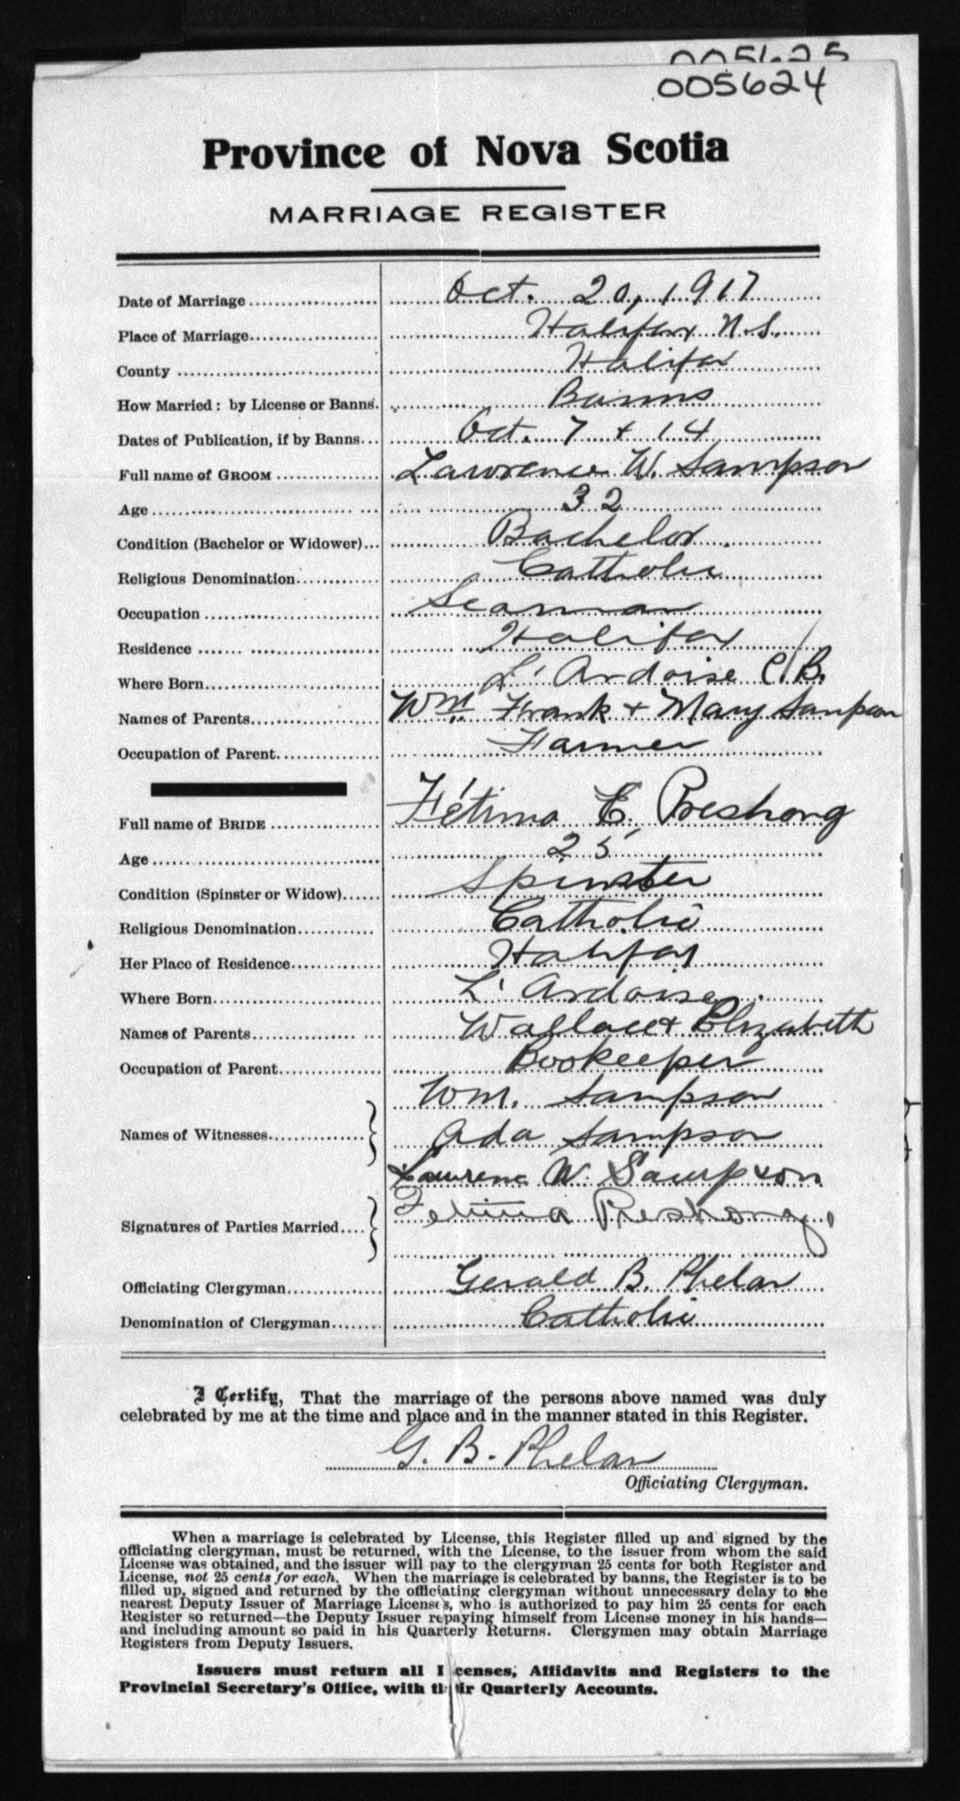 005625
005624
Province of Nova Scotia
MARRIAGE REGISTER
Date of Marriage Oct. 20, 1917
Place of Marriage Halifax N.S.
County Halifax
How Married: by License or Banns. Banns
Dates of Publication, if by Banns Oct. 7 + 14
Full name of GROOM Lawrence W. Sampson
Age 32
Condition (Bachelor or Widower) Bachelor
Religious Denomination Catholic
Occupation Seaman
Residence Halifax
Where Born L'Ardoise C.B.
Names of Parents Wm. Frank + Mary Sampson
Occupation of Parent Farmer
Full name of BRIDE Fétima E. Preshong
Age 25
Condition (Spinster or Widow) Spinster
Religious Denomination Catholic
Her Place of Residence Halifax
Where Born L'Ardoise
Names of Parents Wallace + Elizabeth
Occupation of Parent Bookeeper
Wm. Sampson
Names of Witnesses Ada Sampson
Lawrence W. Sampson
Signatures of Parties Married Fetima Preshong
Officiating Clergyman Gerald B. Phelan
Denomination of Clergyman Catholic
I Certify, That the marriage of the persons above named was duly
celebrated by me at the time and place and in the manner stated in this Register.
G. B. Phelan
Officiating Clergyman.
When a marriage is celebrated by License, this Register filled up and signed by the
officiating clergyman, must be returned, with the License, to the issuer from whom the said
License was obtained, and the issuer will pay to the clergyman 25 cents for both Register and
License, not 25 cents for each. When the marriage is celebrated by banns, the Register is to be
filled up, signed and returned by the officiating clergyman without unnecessary delay to the
nearest Deputy Issuer of Marriage Licenses, who is authorized to pay him 25 cents for each
Register so returned—the Deputy Issuer repaying himself from License money in his hands—
and including amount so paid in his Quarterly Returns. Clergymen may obtain Marriage
Registers from Deputy Issuers.
Issuers must return all Licenses, Affidavits and Registers to the
Provincial Secretary's Office, with their Quarterly Accounts.